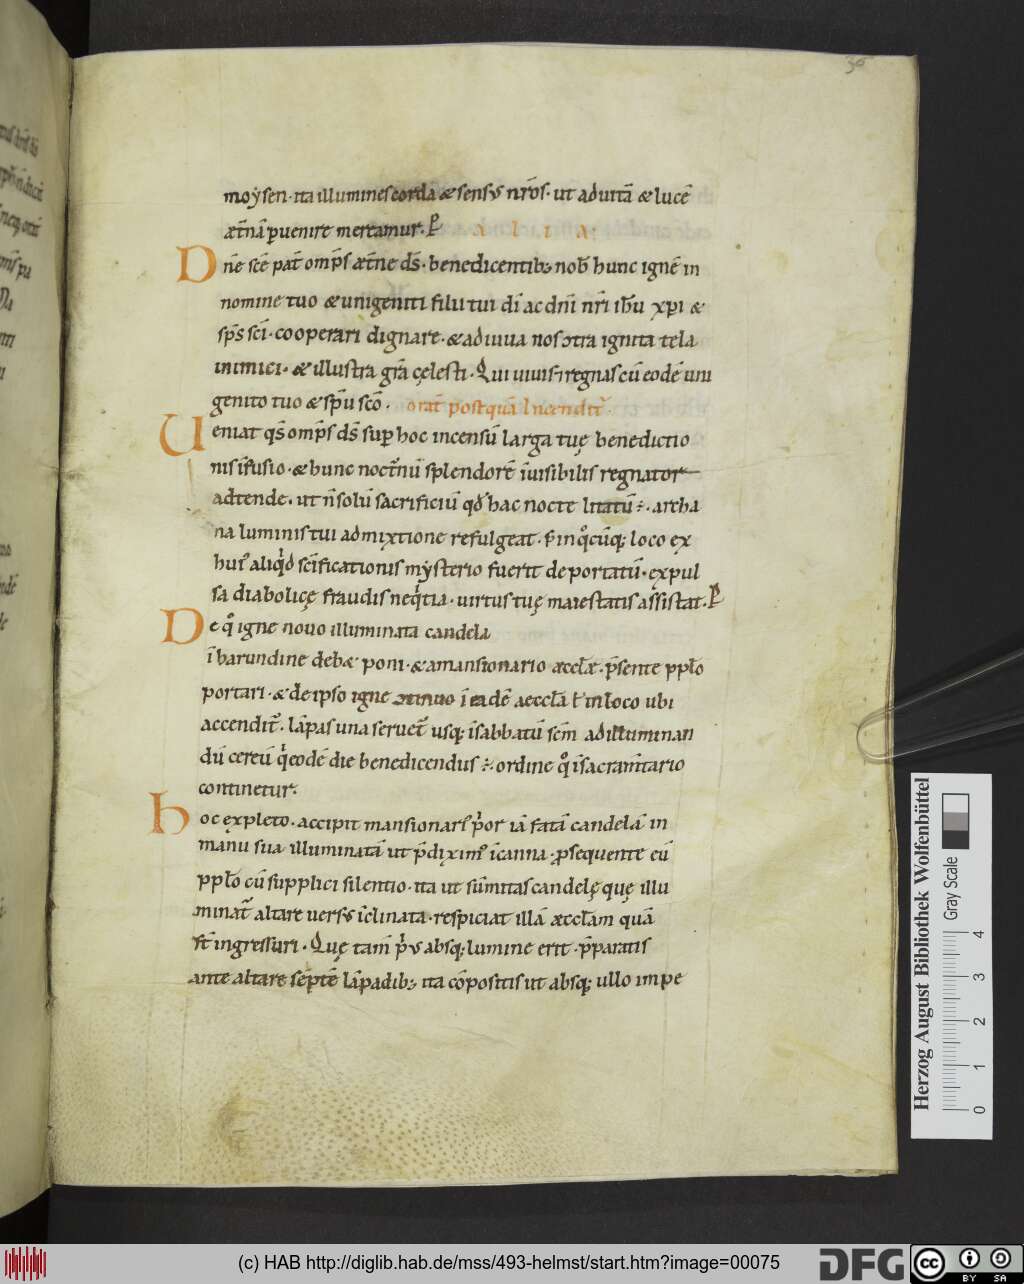 36
moẏsen· ita illumines corda & sensus nr̄os· ut ad uitā & lucē
ætnā puenire mereamur· P̲ A L I A·
Dn̄e sc̄e pat̄ omp̄s æt̄ne ds̄· benedicentib; nob̄ hunc ignē in
nomine tuo & unigeniti filii tui di ac dn̄i nr̄i ih̄u xp̄i &
sp̄s sc̄i· cooperari dignare· & adiuua nos c̄tra ignita tela
inimici· & illustra gr̄a cęlesti· Qui uiuis ⁊ regnas cū eodē uni
genito tuo & sp̄u sc̄o· orat̄ postquā Incendit̄·
Ueniat qs̄ omp̄s ds̄ sup hoc incensū larga tuę benedictio
nis īfusio· & hunc noct̄nū splendorē īuisibilis regnator
adtende· ut n̄ solū sacrificiū qd hac nocte litatū ÷· archa
na luminis tui admixtione refulgeat· s; in qºcūq; loco ex
hui' aliqd sc̄ificationis mẏsterio fuerit deportatū· expul
sa diabolicę fraudis neqtia· uirtus tuę maiestatis assistat· P̲
De qº igne nouo illuminata candela
ī harundine deb& poni· & a mansionario æccl̄æ· p̄sente pp̄lo
portari· & de ipso igne ī eadē aeccl̄a ł in loco ubi
accendit̄· lāpas una seruet̄ usq; ī sabbatū sc̄m ad illuminan
dū cereū q eodē die benedicendus ÷· ordine qº ī sacram̄tario
continetur·
hoc expleto· accipit mansionari' p̄or iā fatā candelā in
manu sua illuminatā ut p̄dixim' ī canna· p̲sequente eū
pp̄lo cū supplici silentio· ita ut sūmitas candelę quę illu
minat̄ altare uersus īclinata· respiciat illā æccl̄am quā
st̄ ingressuri· Quę tam̄ p̄us absq; lumine erit· p̄paratis
ante altare septē lāpadib; ita cōpositis ut absq; ullo impe
Herzog August Bibliothek Wolfenbüttel
Gray Scale
0 1 2 3 4
(c) HAB http://diglib.hab.de/mss/493-helmst/start.htm?image=00075
DFG
cc BY SA